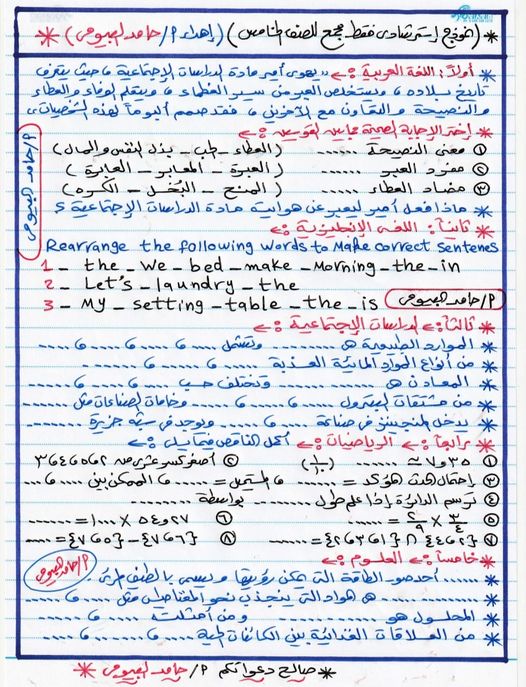 * (نموذج إسترشادى فقط مجمع للصف الخامس) (إهداء م/حامد البيومى) *
* أولاً: اللغة العربية :- «يهوى أمير مادة الدراسات الإجتماعية ، حيث يتعرف
تاريخ بلاده ، ويستخلص العبر من سير العظماء ، ويتعلم الوفاء والعطاء
والنصيحة والتعاون مع الآخرين ، فقد صمم ألبوماً لهذه الشخصيات»
* إختر الإجابة الصحيحة مما بين القوسين :-
① معنى النصيحة ...... (العطاء - طب - بذل النفس والمال)
② مفرد العبر ...... (العبرة - المعابر - العابرة)
③ مضاد العطاء ...... (المنع - البُخل - الكره)
* ماذا فعل أمير ليعبر عن هوايته مادة الدراسات الإجتماعية ؟
م/حامد البيومى
* ثانياً: اللغة الإنجليزية :-
Rearrange the following words to make correct sentenes
1 - the - we - bed - make - morning - the - in
2 - Let's - laundry - the
3 - My - setting - table - the - is
م/حامد البيومى
* ثالثاً :- الدراسات الإجتماعية :-
* الموارد الطبيعية هى ...... وتشمل ...... ، ...... ، ......
* من أنواع الموارد المائية العذبة ...... ، ...... ، ......
* المعادن هى ...... وتختلف حسب ...... ، ...... ، ......
* من مشتقات البترول ...... ، ...... ، ...... وخامات الصناعات مثل ......
* يدخل المنجنيز فى صناعة ...... ، ...... ويوجد فى شبه جزيرة ......
* رابعاً :- الرياضيات :- أكمل الناقص فيما يلى :-
① ٧٫٣٥ ≈ ...... (١/١٠)
② أصغر كسر عشرى من ٢ ، ٥ ، ٦ ، ٤ ، ٣
③ إحتمال الحدث المؤكد = ...... ، المستحيل = ...... ، الممكن بين ...... ، ......
④ ترسم الدائرة إذا علم طول ...... بواسطة ......
⑤ ٣/٤ × ٢/٩ = ......
⑥ ٥٤٫٢٧ × ١٠٠٠ = ......
⑦ {٢،٤} ∩ {١،٣،٢} = ......
⑧ {٦،٧} - {٥،٧} = ......
* خامساً :- العلوم :-
* ...... أحد صور الطاقة التى يمكن رؤيتها ويسمى بالطيف المرئى.
* ...... هى المواد التى ينجذب نحو المغناطيس مثل ...... ، ......
* المحلول هو ...... ومن أمثلته ...... ، ......
* من العلاقات الغذائية بين الكائنات الحية ...... ، ...... ، ......
م/حامد البيومى
* صالح دعواتكم م/حامد البيومى *